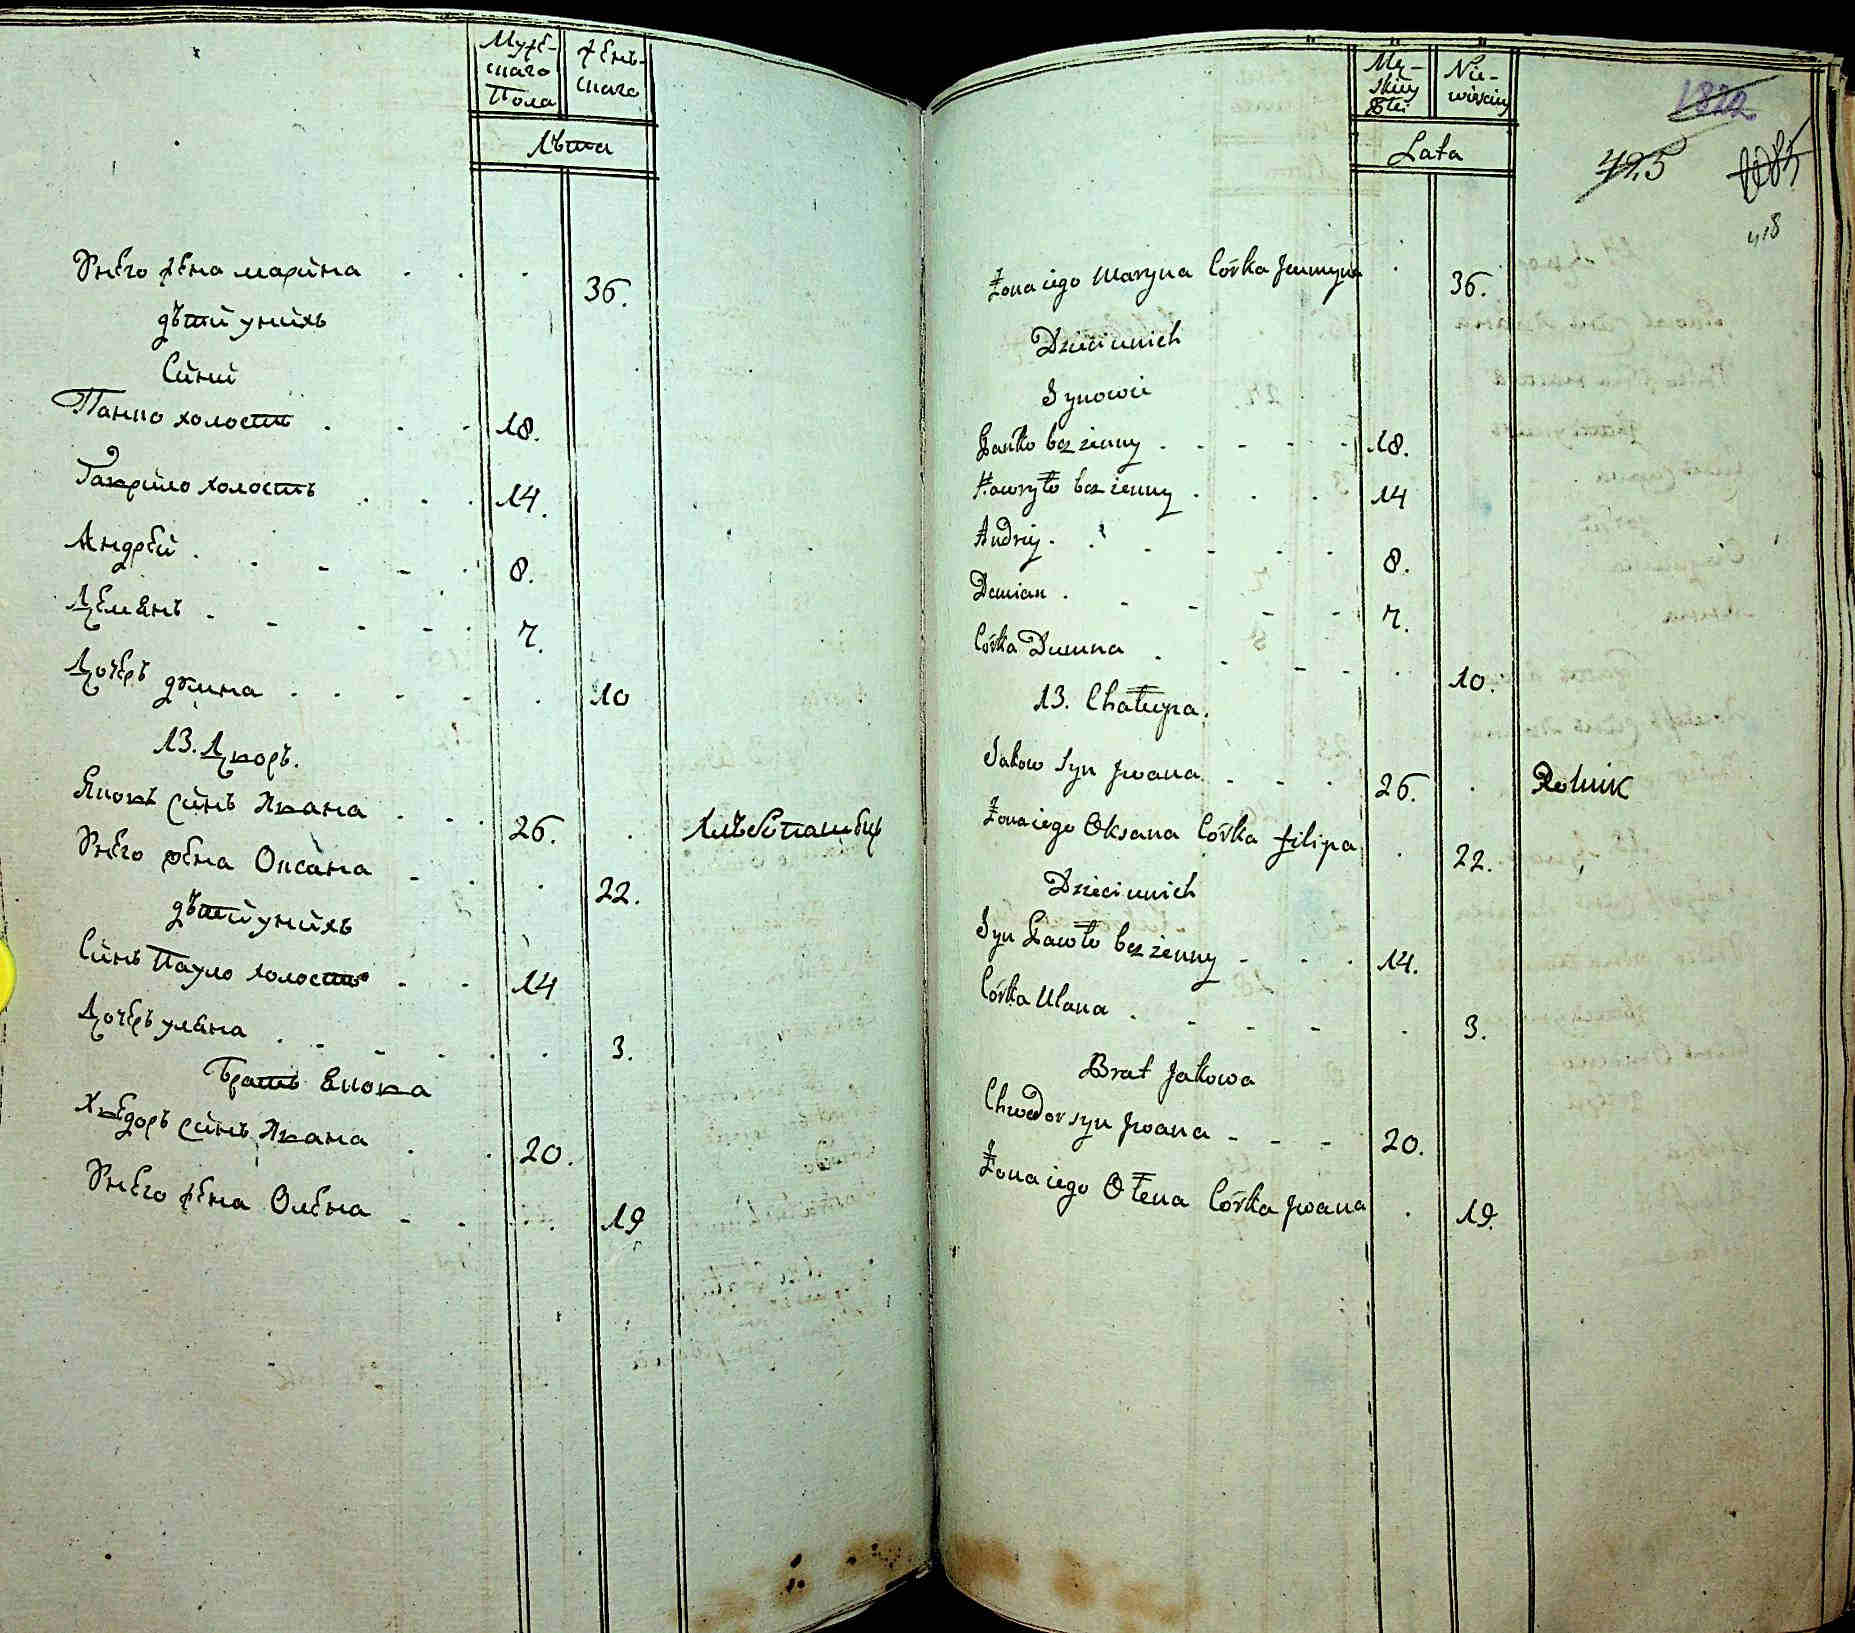 Муже-
скаго
Пола
жень-
скаго
Лѣта
Унего жена марина 36.
дѣтй унихъ
Сини
Панко холостъ 18.
Гаврило холостъ 14.
Андрей 8.
Демянъ 7.
Дочерь дѣмна 10
13. Дворъ.
Яковъ синъ Ивана 26. Хлѣбопашецъ
Унего жена Оксана 22.
дѣтй унихъ
Синъ Пауло холостъ 14
Дочерь уляна 3.
Братъ якова
Хведоръ синъ Ивана 20.
Унего жена Олена 19
Mę-
skiey
Płci
Nie-
wieściey
Lata
1822
425
418
Żona iego Maryna Córka 36.
Dzieci unich
Synowie
Pańko bezżenny 18.
Hawryło bezżenny 14
Andriej 8.
Demian 7.
Córka Dumna 10.
13. Chałupa.
Jakow Syn Jwana 26. Rolnik
Żona iego Oksana Córka filipa 22.
Dzieci unich
Syn Pawło bezżenny 14.
Córka Ulana 3.
Brat Jakowa
Chwedor syn Jwana 20.
Żona iego Ołena Córka Jwana 19.